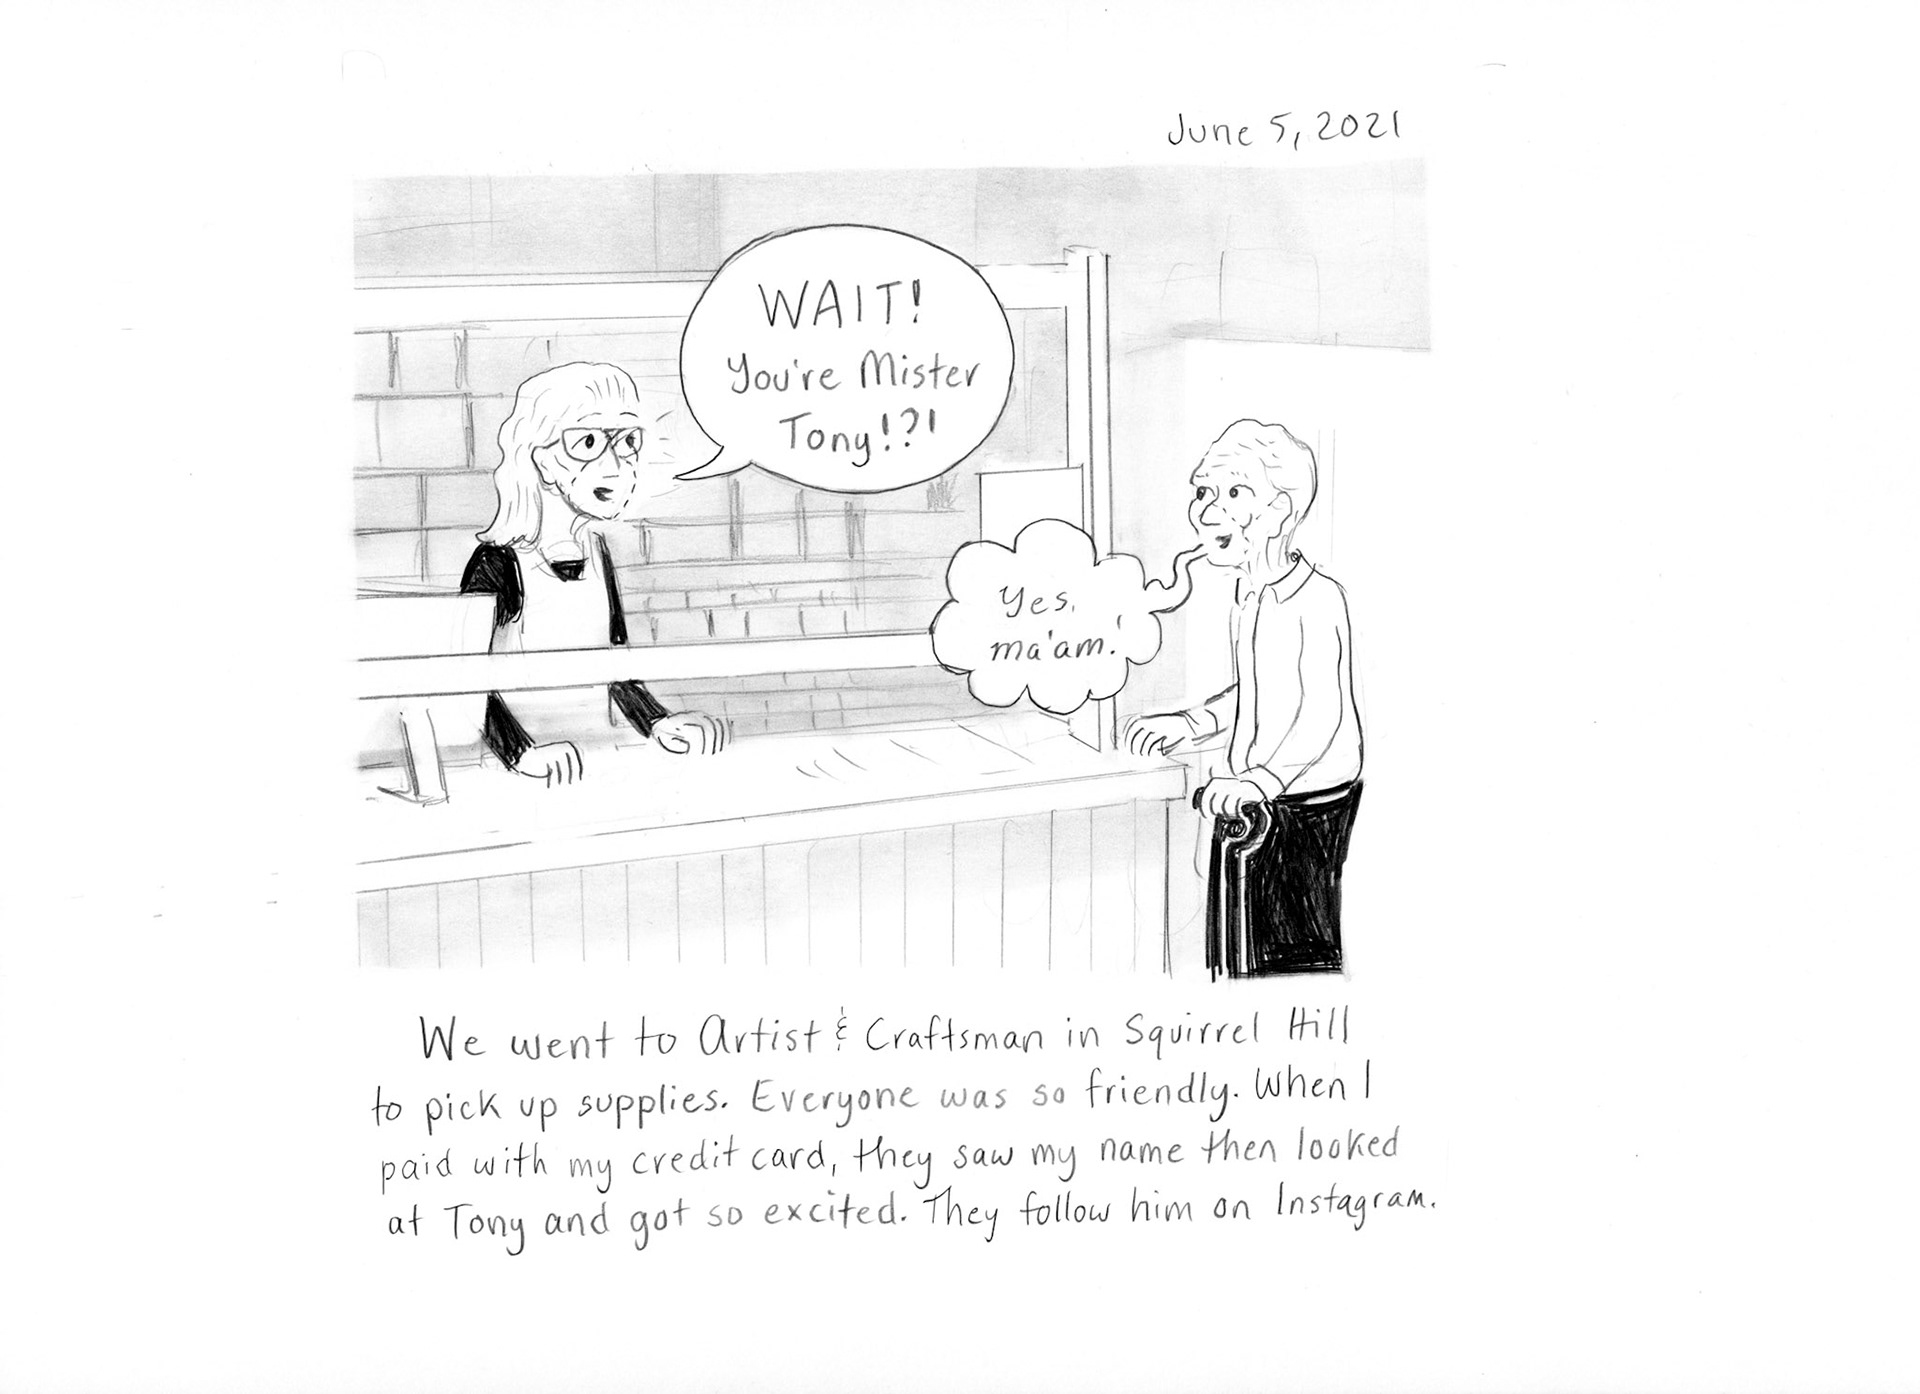 June 5, 2021
WAIT!
You're Mister
Tony!?!
Yes,
ma'am!
We went to Artist & Craftsman in Squirrel Hill
to pick up supplies. Everyone was so friendly. When I
paid with my credit card, they saw my name then looked
at Tony and got so excited. They follow him on Instagram.